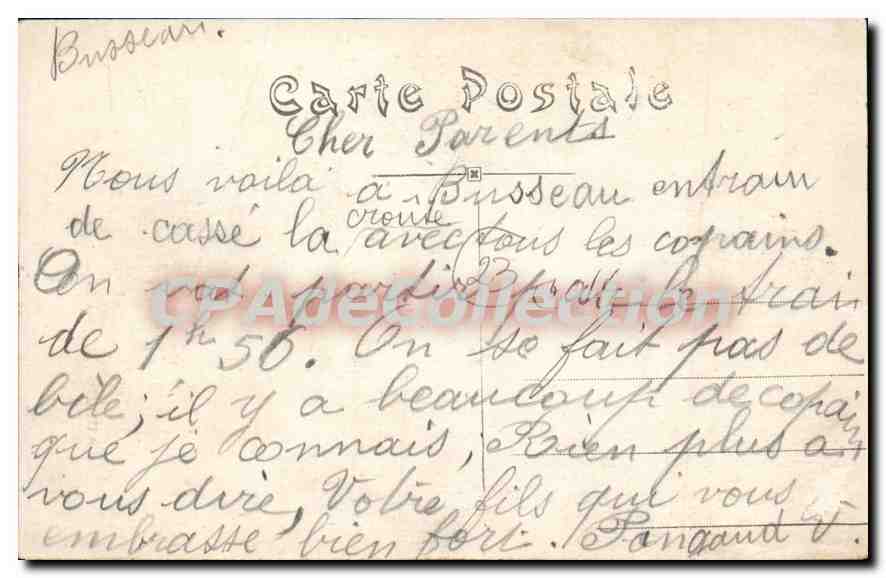 Busseau.
Carte Postale
Cher Parents
Nous voilà à Busseau entrain
de cassé la croute avec tous les copains.
On vat partir par le train
de 1h 56. On se fait pas de
bile; il y a beaucoup de copains
que je connais, Rien plus a
vous dire, Votre fils qui vous
embrasse bien fort. Pangaud V.
CPAdeCollection